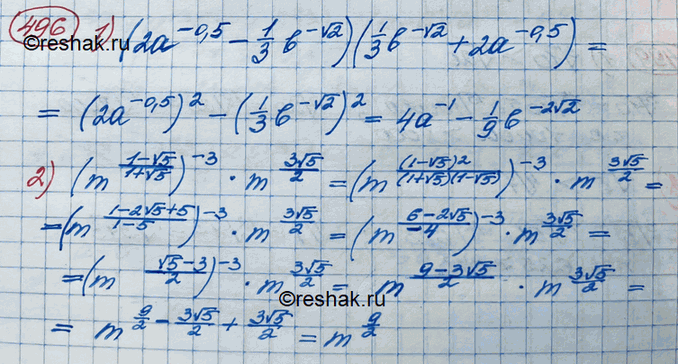 496 1) (2a^{-0,5} - \frac{1}{3}b^{-√2})(\frac{1}{3}b^{-√2} + 2a^{-0,5}) =
©reshak.ru
= (2a^{-0,5})^2 - (\frac{1}{3}b^{-√2})^2 = 4a^{-1} - \frac{1}{9}b^{-2√2}
2) (m^{\frac{1-√5}{1+√5}})^{-3} · m^{\frac{3√5}{2}} = (m^{\frac{(1-√5)2}{(1+√5)(1-√5)}})^{-3} · m^{\frac{3√5}{2}} =
= (m^{\frac{1-2√5+5}{1-5}})^{-3} · m^{\frac{3√5}{2}} = (m^{\frac{6-2√5}{-4}})^{-3} · m^{\frac{3√5}{2}} =
= (m^{\frac{√5-3}{2}})^{-3} · m^{\frac{3√5}{2}} = m^{\frac{9-3√5}{2}} · m^{\frac{3√5}{2}} =
©reshak.ru
= m^{\frac{9}{2} - \frac{3√5}{2} + \frac{3√5}{2}} = m^{\frac{9}{2}}